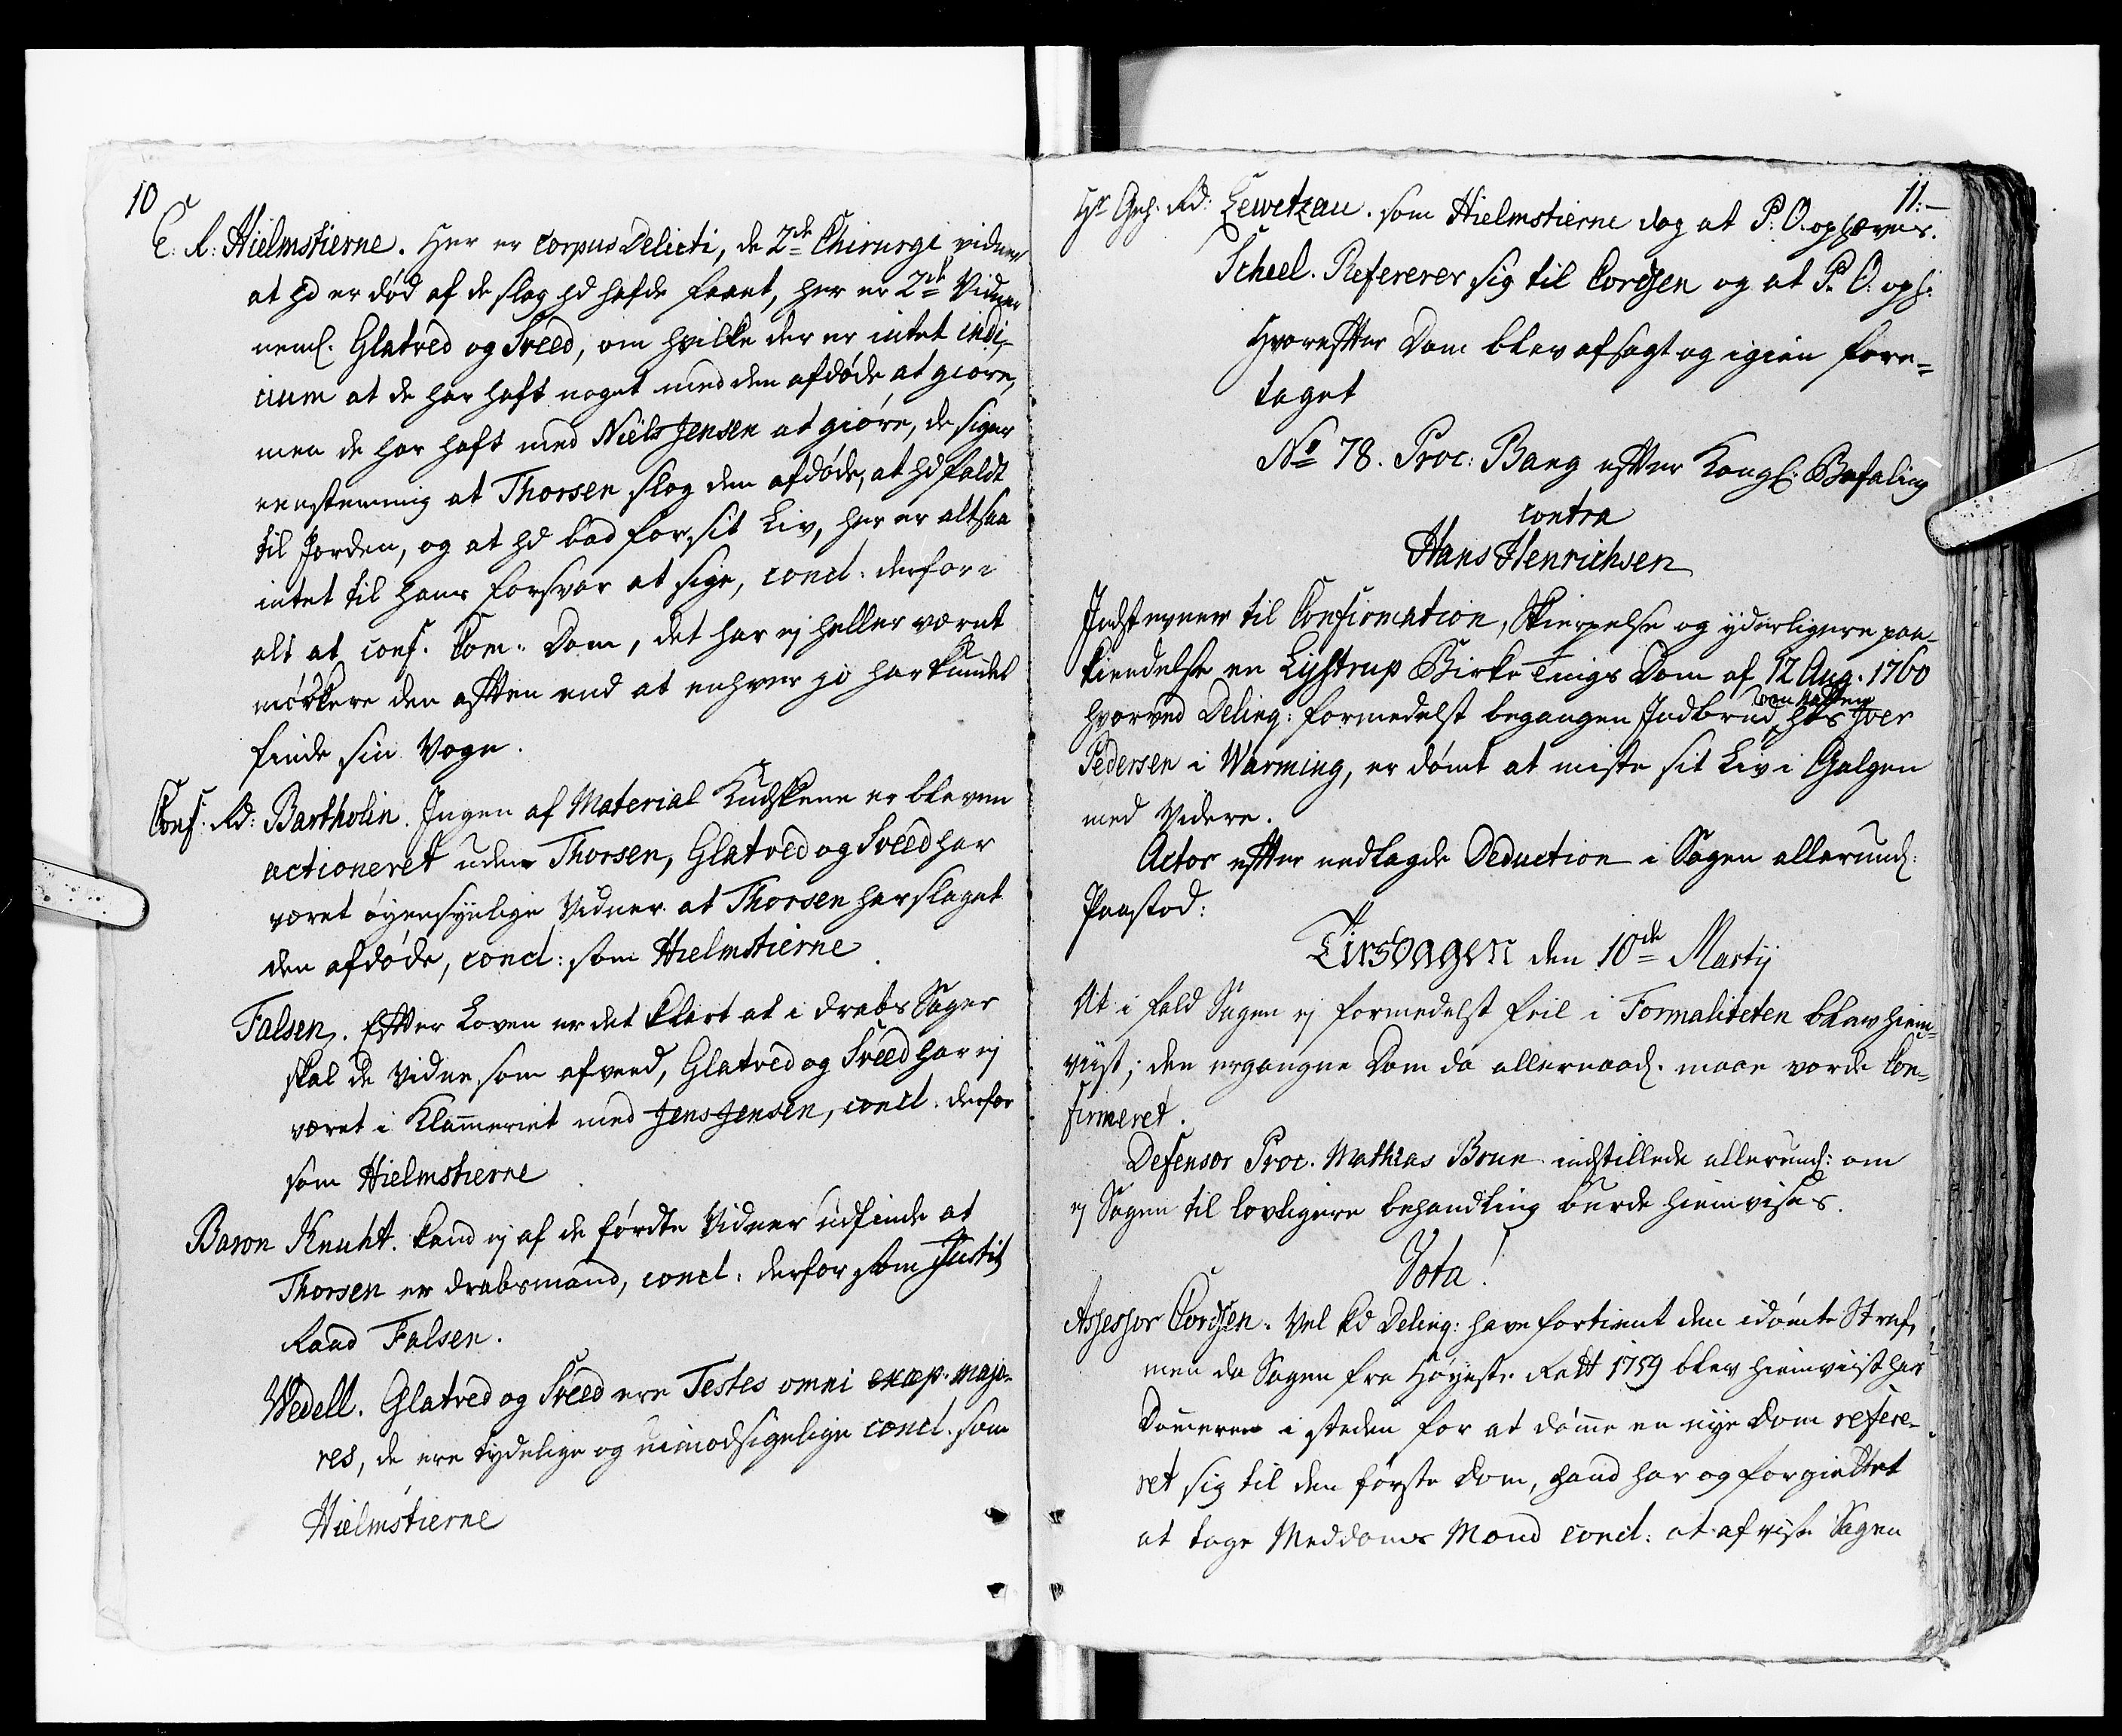 10
E. R: Hielmstierne. Her er Corpus Delicti, de 2de Chirurgi vidner
at hd er död af de slag hd hafde faaet, her er 2de Vidner
neml. Glatved og Sveed, om hvilke der er intet indi-
cium at de har haft noget med den afdöde at giøre,
men de har haft med Niels Jensen at giøre, de siger
eenstemmig at Thorsen slog den afdöde, at hd faldt
til Jorden, og at hd bad for sit Liv, her er altsaa
intet til hans forsvar at sige, concl: derfor i
alt at conf. Com: Dom, det har ej heller været
mörkere den aften end at enhver jo har kundet
finde sin Vogn.
Conf: Rd: Bartholin. Ingen af Material Kudskene er bleven
actioneret uden Thorsen, Glatved og Sveed har
været öyensynlige Vidner at Thorsen har slaget
den afdöde, concl: som Hielmstierne.
Falsen. Efter Loven er det klart at i drabs Sager
skal de vidne som afveed, Glatved og Sveed har ej
været i Klammeriet med Jens Jensen, concl: derfor
som Hielmstierne
Baron Knuht. kand ej af de fördte Vidner udfinde at
Thorsen er drabsmand, concl: derfor som Justitz
Raad Falsen.
Wedell. Glatved og Sveed ere Testes omni excep. majo-
res, de ere tydelige og uimodsigelige concl. som
Hielmstierne
11:
Hr Geh. Rd: Lewetzau. som Hielmstierne dog at P: O. ophæves.
Scheel. Refererer sig til Cordsen og at P. O: oph:
Hvorefter Dom blev afsagt og igien fore-
taget
No 78. Proc: Bang efter Kongl: Befaling
contra
Hans Henrichsen
Indstevner til Confirmation, Skierpelse og yderligere paa-
kiendelse en Lystrup Birke Tings Dom af 12 Aug. 1760
hvorved Delinq: formedelst begangen Indbrud om Natten hos Iver
Pedersen i Warming, er dömt at miste sit Liv i Galgen
med Videre.
Actor efter nedlagde Deduction i Sagen allerund:
Paastod:
Tirsdagen den 10de Martij
At i fald Sagen ej formedelst feil i Formaliteten blev hiem-
viist; den ergangne Dom da allernaad. maae vorde Con-
firmeret.
Defensor Proc. Mathias Brun indstillede allerund: om
ej Sagen til lovligere behandling burde hiemvises.
Vota!
Assessor Cordsen. Vel kd Delinq: have fortient den idömte Straf,
men da Sagen fra Höyeste Rett 1759 blev hiemviist har
Dommeren i steden for at dömme en nye Dom refere-
ret sig til den förste Dom, hand har og forgiettet
at tage Meddoms Mænd concl: at afvise Sagen